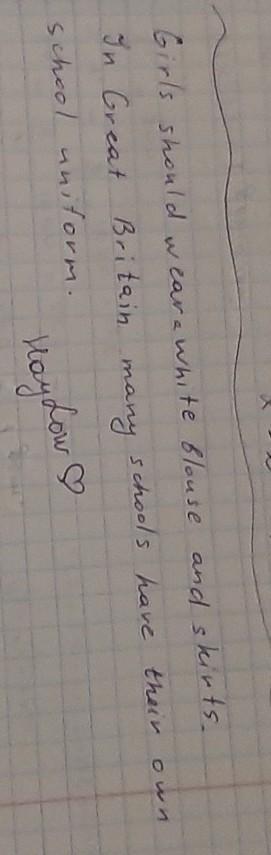 Girls should wear a white blouse and skirts.
In Great Britain many schools have their own
school uniform.